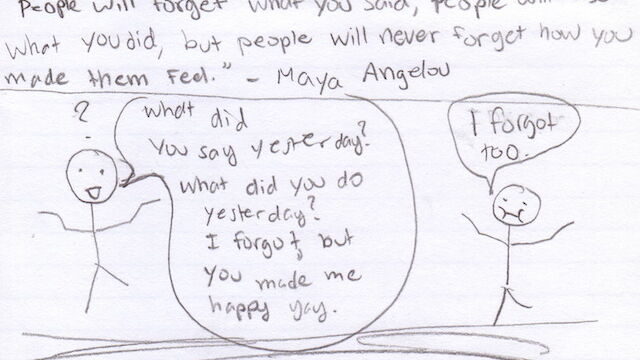 People will forget what you said, people will
what you did, but people will never forget how you
made them feel." - Maya Angelou
?
What did
you say yesterday?
what did you do
yesterday?
I forgot, but
you made me
happy yay.
I forgot
too.